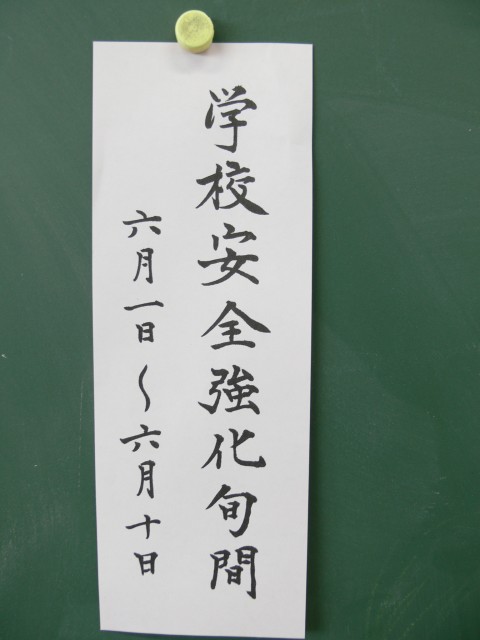 学校安全強化旬間
六月一日〜六月十日